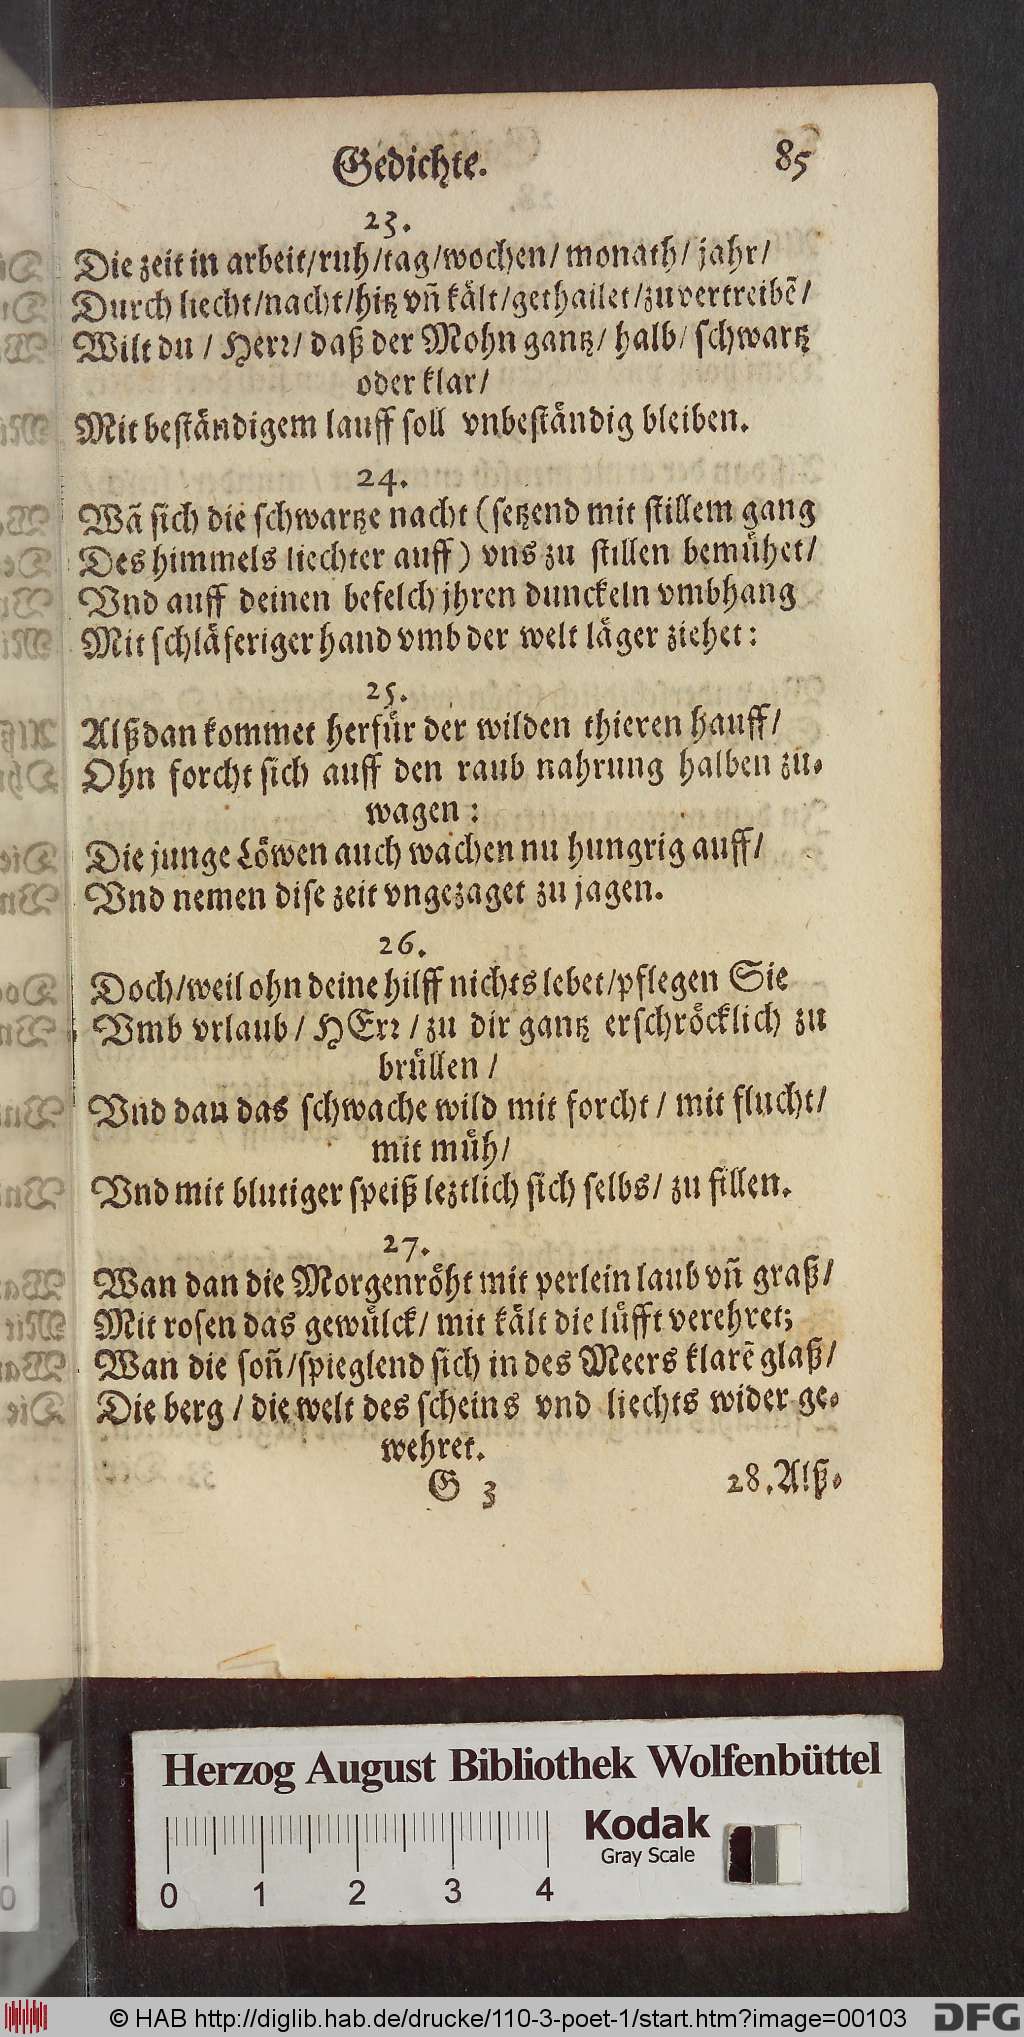 Gedichte. 85
23.
Die zeit in arbeit/ruh/tag/wochen/ monath/ jahr/
Durch liecht/nacht/hitz vñ kält/gethailet/zu vertreibẽ/
Wilt du / Herr/ daß der Mohn gantz/ halb/ schwartz
oder klar/
Mit beständigem lauff soll vnbeständig bleiben.
24.
Wã sich die schwartze nacht (setzend mit stillem gang
Des himmels liechter auff) vns zu stillen bemühet/
Vnd auff deinen befelch jhren dunckeln vmbhang
Mit schläferiger hand vmb der welt läger ziehet:
25.
Alßdan kommet herfür der wilden thieren hauff/
Ohn forcht sich auff den raub nahrung halben zu-
wagen :
Die junge Löwen auch wachen nu hungrig auff/
Vnd nemen dise zeit vngezaget zu jagen.
26.
Doch/weil ohn deine hilff nichts lebet/pflegen Sie
Vmb vrlaub/ HErr /zu dir gantz erschröcklich zu
brüllen /
Vnd dan das schwache wild mit forcht / mit flucht/
mit müh/
Vnd mit blutiger speiß leztlich sich selbs/ zu fillen.
27.
Wan dan die Morgenröht mit perlein laub vñ graß/
Mit rosen das gewülck/ mit kält die lüfft verehret;
Wan die soñ/spieglend sich in des Meers klarẽ glaß/
Die berg / die welt des scheins vnd liechts wider ge-
wehret.
G 3 28. Alß-
Herzog August Bibliothek Wolfenbüttel
Kodak
Gray Scale
0 1 2 3 4
© HAB http://diglib.hab.de/drucke/110-3-poet-1/start.htm?image=00103 DFG